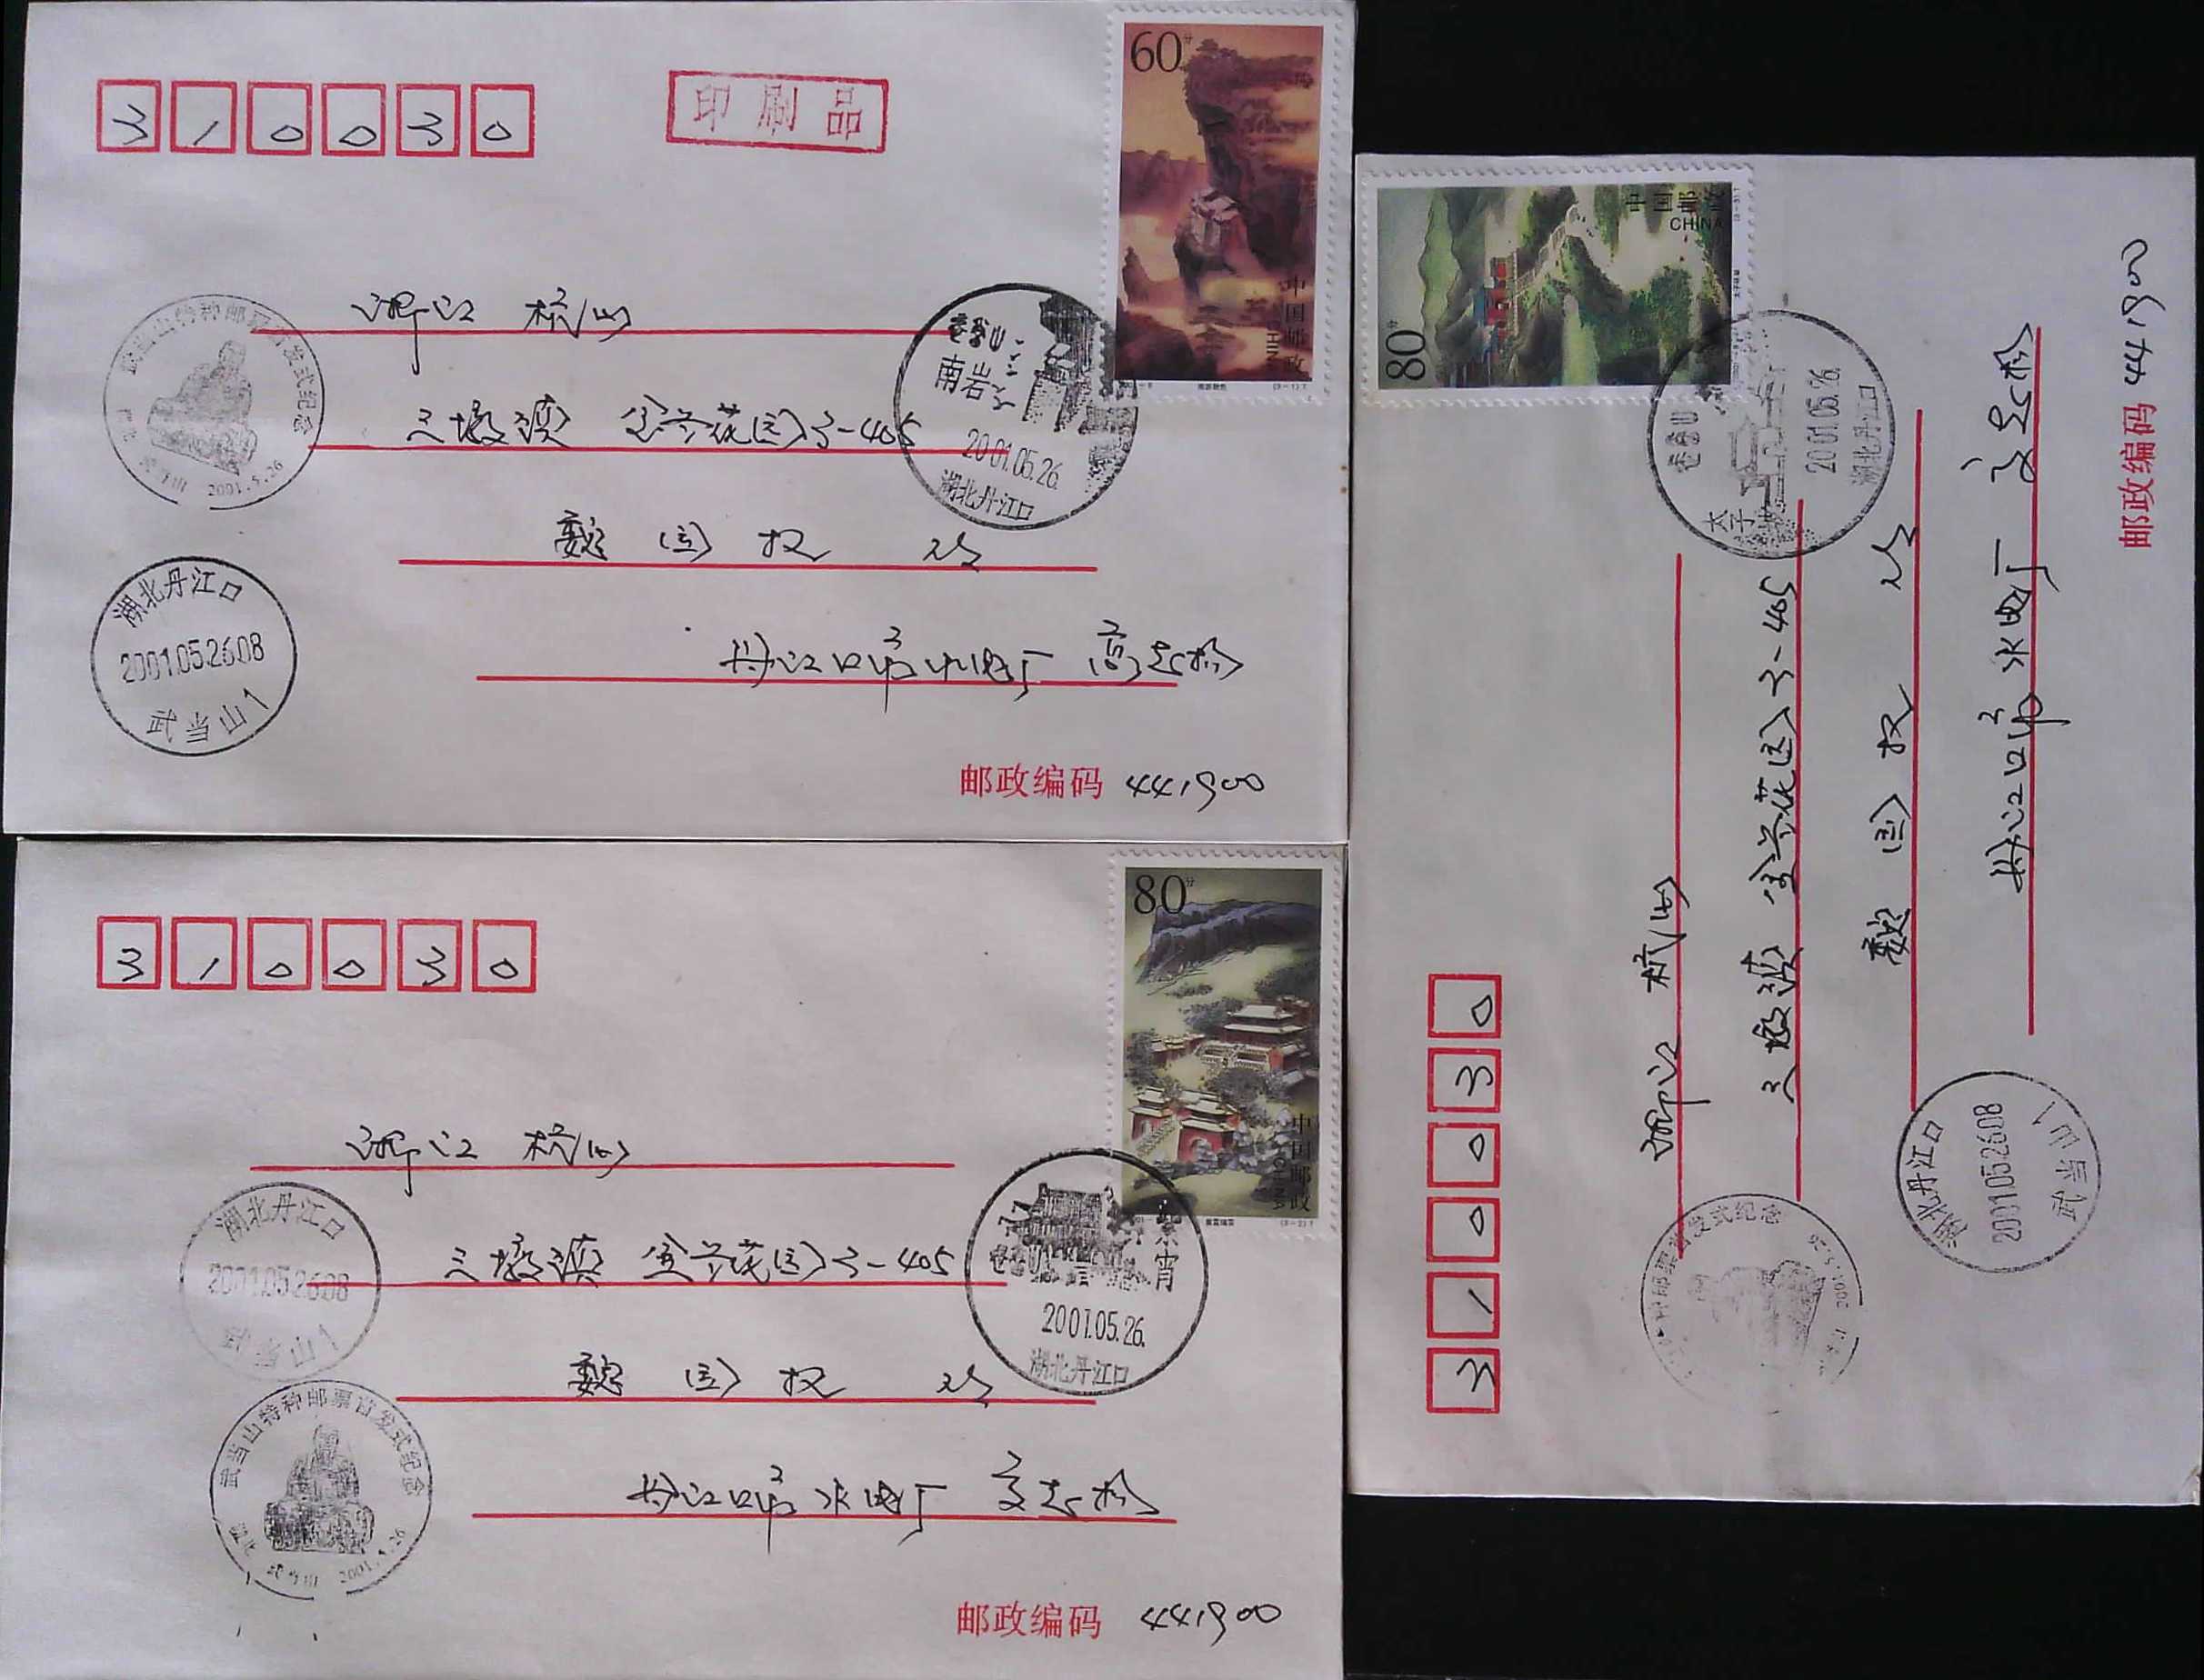 310030
印刷品
60分
中国邮政
CHINA
浙江 杭州
三墩镇 金兰花园3-405
魏国权 收
丹江口市水电厂 高志松
邮政编码 441900
武当山特种邮票首发式纪念
湖北 武当山 2001.5.26
南岩
2001.05.26.
湖北丹江口
湖北丹江口
2001.05.26.08
武当山1
310030
80分
中国邮政
CHINA
浙江 杭州
三墩镇 金兰花园3-405
魏国权 收
丹江口市水电厂 高志松
邮政编码 441900
湖北丹江口
2001.05.26.08
武当山1
武当山特种邮票首发式纪念
湖北 武当山 2001.5.26
紫霄
2001.05.26.
湖北丹江口
310030
80分
中国邮政
CHINA
浙江 杭州
三墩镇 金兰花园3-405
魏国权 收
丹江口市水电厂 高志松
邮政编码 441900
太子
2001.05.26.
湖北丹江口
邮票首发式纪念
2001.5.26
湖北丹江口
2001.05.26.08
武当山1